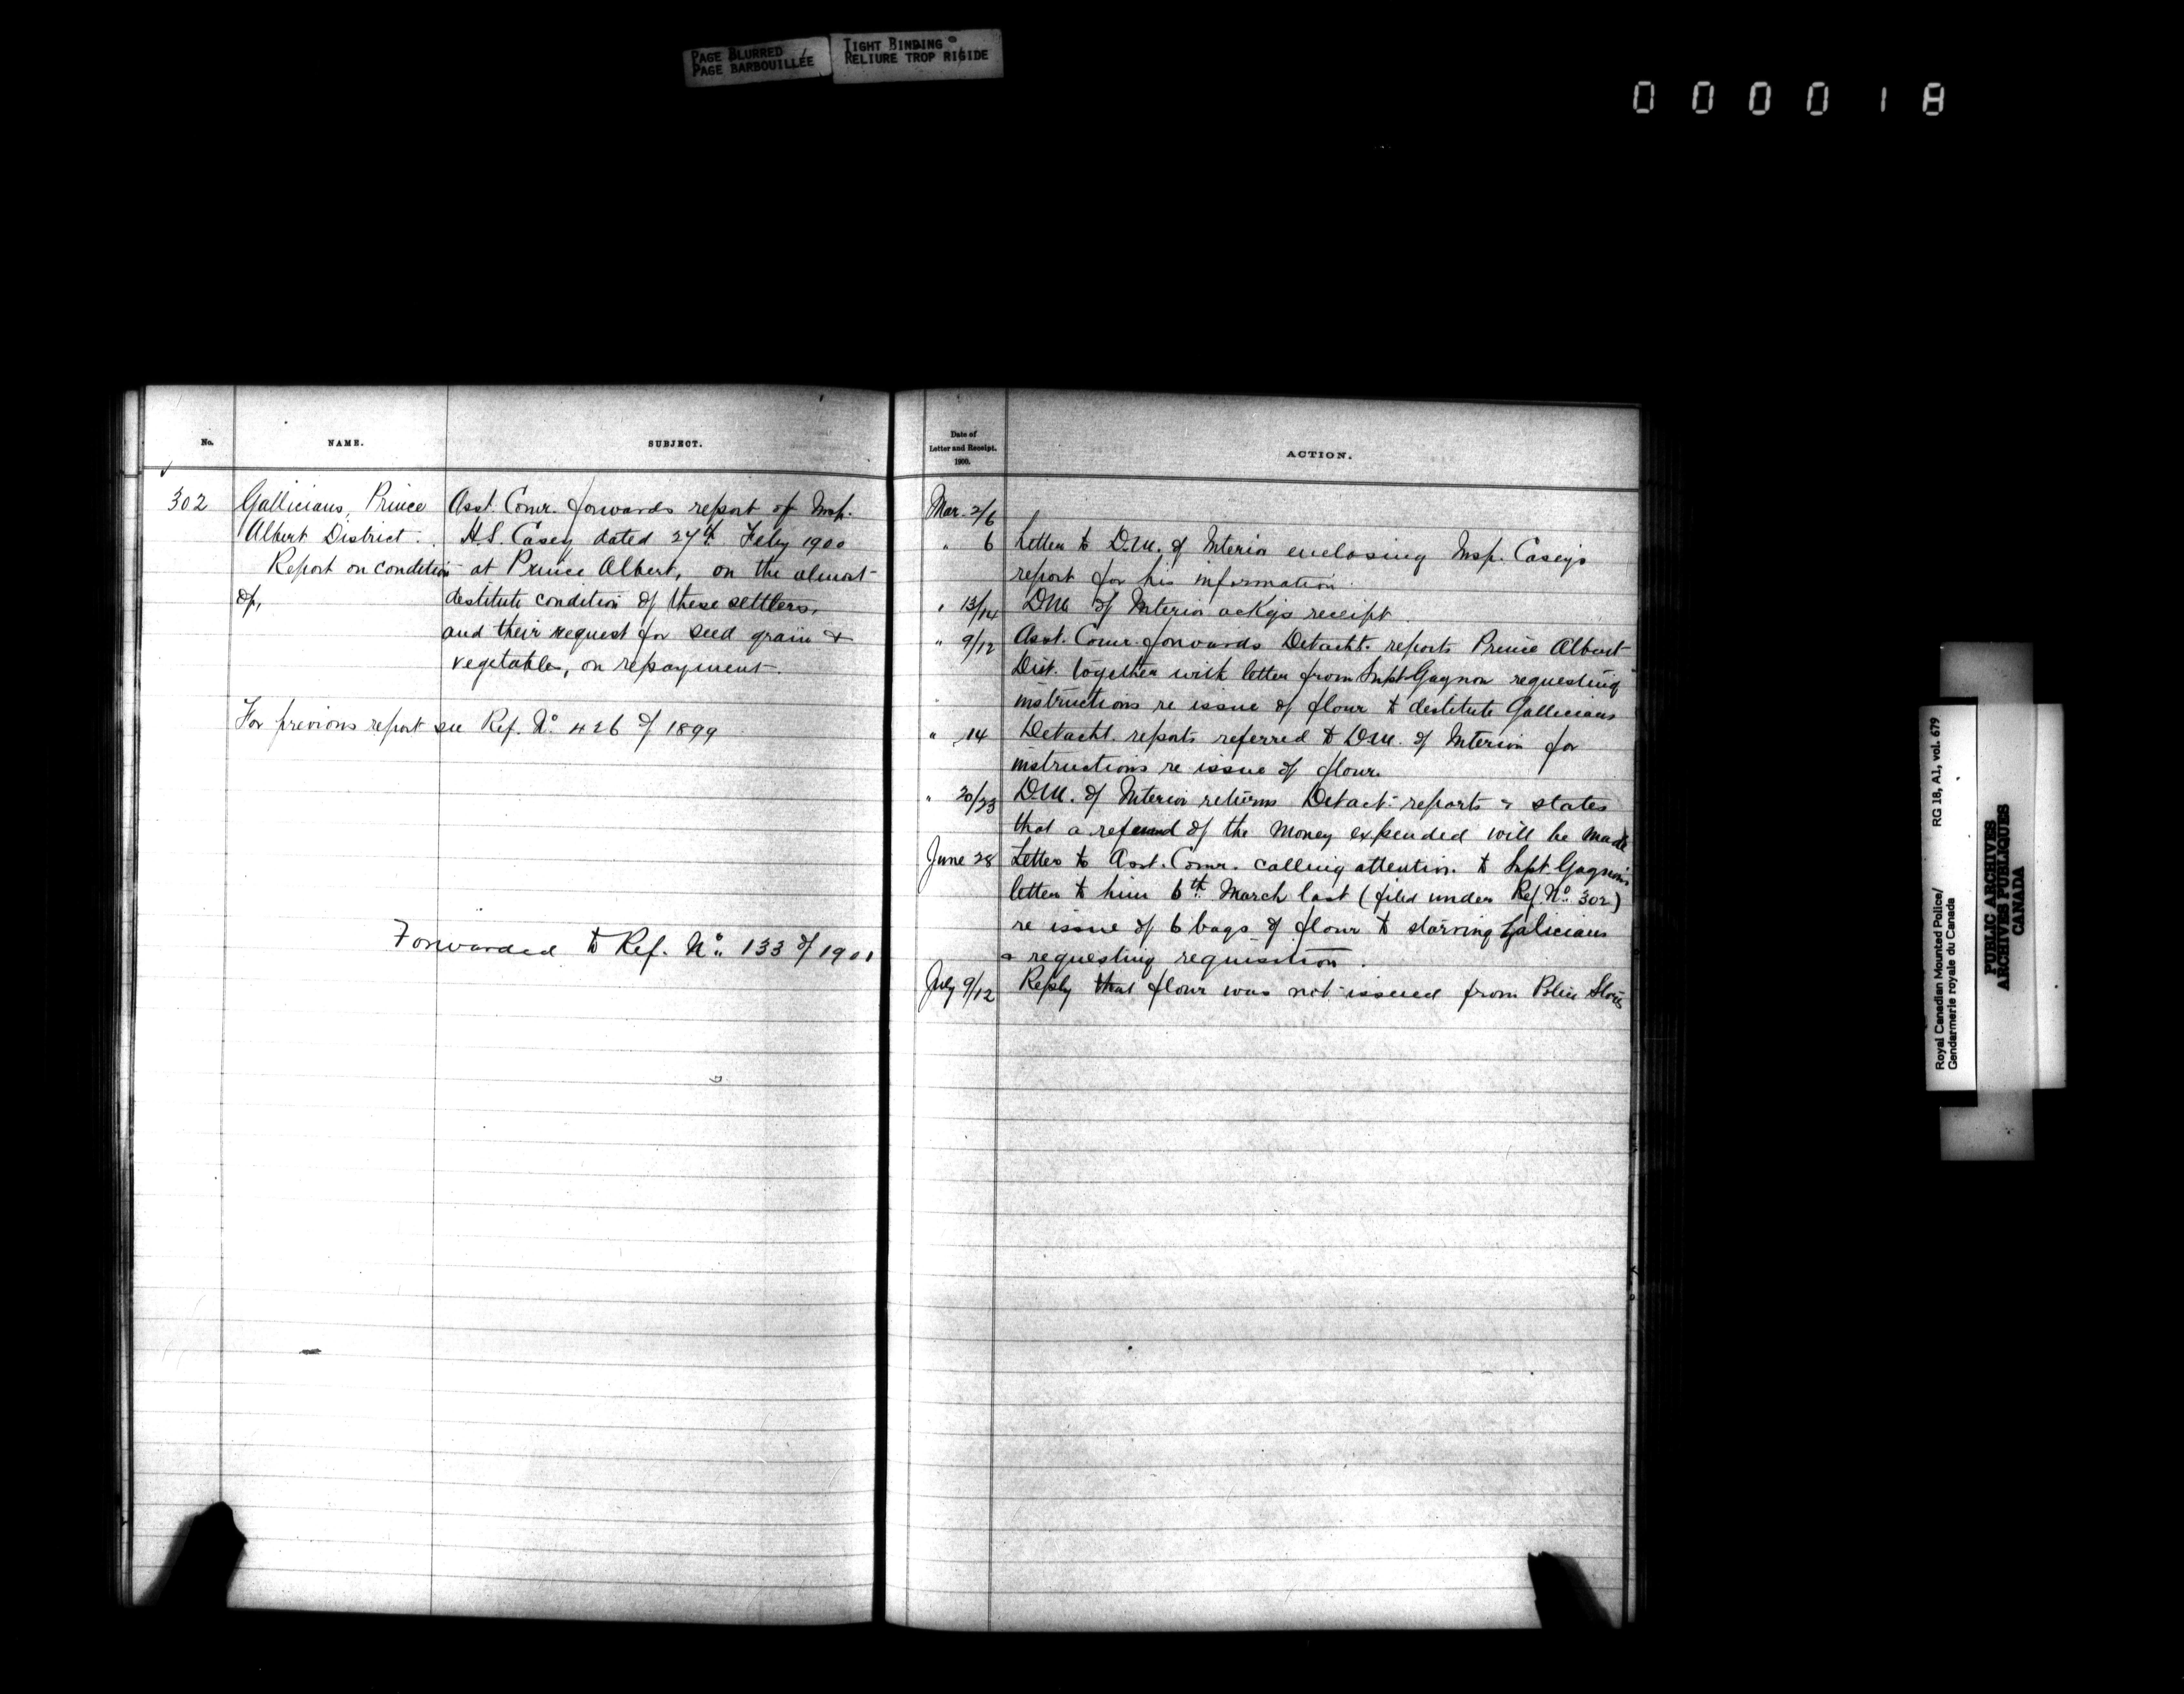 PAGE BLURRED
PAGE BARBOUILLÉE
TIGHT BINDING
RELIURE TROP RIGIDE
0 0 0 0 1 8
No.
NAME.
SUBJECT.
302
Gallicians, Prince
Albert District.
Report on condition
of,
Asst. Comr. forwards report of Insp.
H.S. Casey dated 27th Feby 1900
at Prince Albert, on the almost
destitute condition of these settlers,
and their request for seed grain &
vegetables, on repayment.
For previous report see Ref. No. 426 of 1899
Forwarded to Ref. No. 133 of 1901
Date of
Letter and Receipt.
1900.
ACTION.
Mar. 2/6
" 6 Letter to D.M. of Interior enclosing Insp. Casey's
report for his information.
" 13/14 D.M. of Interior ackgs receipt.
" 9/12 Asst. Comr. forwards Detacht. reports Prince Albert
Dist. together with letter from Supt. Gagnon requesting
instructions re issue of flour to destitute Gallicians
" 14 Detacht. reports referred to D.M. of Interior for
instructions re issue of flour.
" 20/23 D.M. of Interior returns Detact. reports & states
that a refund of the money expended will be made
June 28 Letter to Asst. Comr. calling attention to Supt. Gagnon's
letter to him 6th March last (filed under Ref. No. 302)
re issue of 6 bags of flour to starving Galicians
& requesting requisition.
July 9/12 Reply that flour was not issued from Police Stores
Royal Canadian Mounted Police/ RG 18, A1, vol. 679
Gendarmerie royale du Canada
PUBLIC ARCHIVES
ARCHIVES PUBLIQUES
CANADA